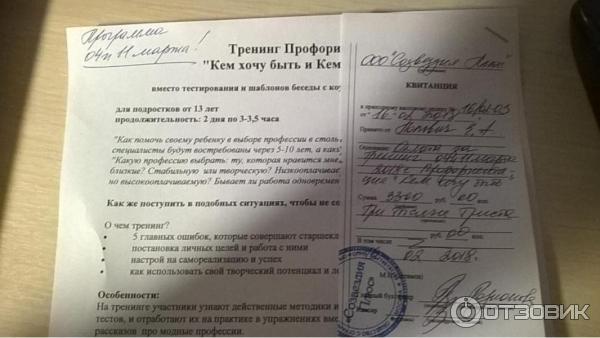 Программа
04 и 11 марта!
Тренинг Профори
"Кем хочу быть и Кем
вместо тестирования и шаблонов беседы с ко
для подростков от 13 лет
продолжительность: 2 дня по 3-3,5 часа
"Как помочь своему ребенку в выборе профессии в столь
специалисты будут востребованы через 5-10 лет, а каки
"Какую профессию выбрать: ту, которая нравится мне,
близкие? Стабильную или творческую? Низкооплачивае
но высокооплачиваемую? Бывает ли работа одновремен
Как же поступить в подобных ситуациях, чтобы не со
О чем тренинг?
• 5 главных ошибок, которые совершают старшекла
• постановка личных целей и работа с ними
• настрой на самореализацию и успех
• как использовать свой творческий потенциал и
Особенности:
На тренинге участники узнают действенные методики и
тестов, и отработают их на практике в упражнениях вме
рассказов про модные профессии.
ООО "Созвездия Плюс"
КВИТАНЦИЯ
к приходному кассовому ордеру №
от " 16 " 02 2018
Принято от
Основание: Оплата за
тренинг
"Кем хочу
Сумма 3300 руб. 00 коп.
Три тысячи триста
руб. 00 коп.
В том числе
02 2018 г.
М.П. (штампа)
бухгалтер
Кассир
"Созвездия Плюс"
ОТЗОВИК